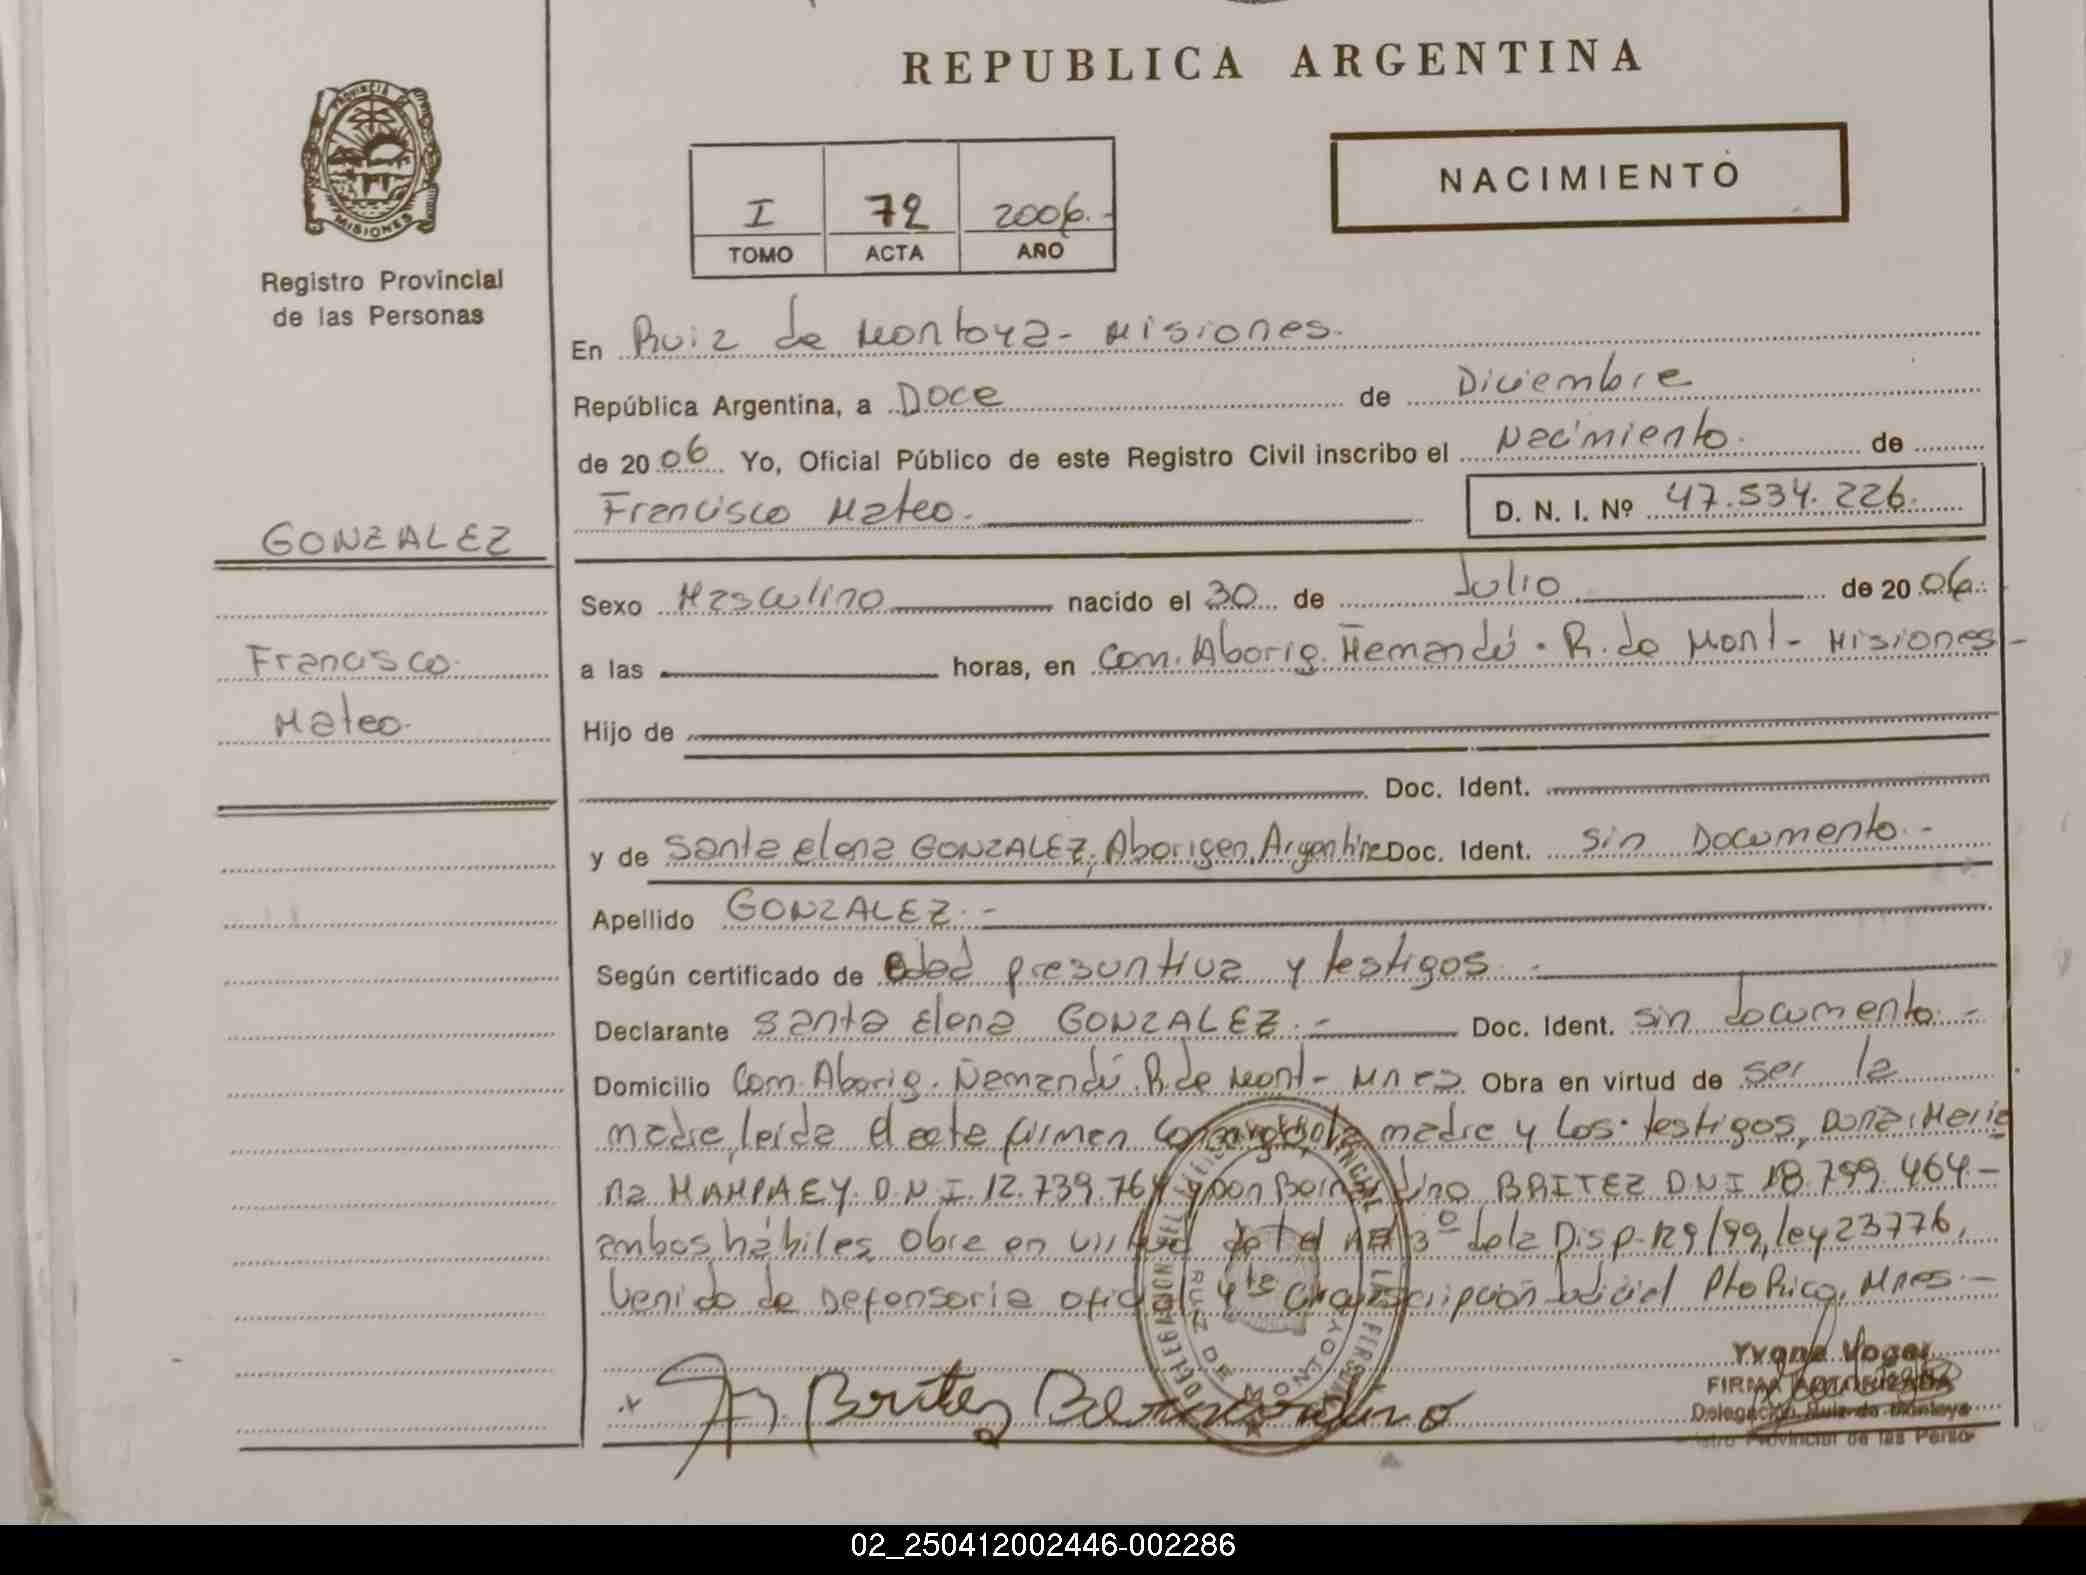 REPUBLICA ARGENTINA
PROVINCIA DE MISIONES
Registro Provincial
de las Personas
I 72 2006.-
TOMO ACTA AÑO
NACIMIENTO
En Ruiz de Montoya - Misiones.
República Argentina, a Doce de Diciembre
de 2006 Yo, Oficial Público de este Registro Civil inscribo el Nacimiento. de
Francisco Mateo. D. N. I. Nº 47.534.226.
GONZALEZ
Francisco
Mateo.
Sexo Masculino nacido el 30 de Julio de 2006.
a las horas, en Com. Aborig. Ñemandú. R. de Mont - Misiones -
Hijo de
Doc. Ident.
y de Santa Elena GONZALEZ, Aborigen, Argentina Doc. Ident. sin Documento.-
Apellido GONZALEZ.-
Según certificado de Edad presuntiva y testigos.
Declarante Santa Elena GONZALEZ.- Doc. Ident. sin documento.-
Domicilio Com. Aborig. Ñemandú. R. de Mont - Mnes Obra en virtud de ser la
madre, leída el acta firman conmigo, la madre y los testigos, Doña Maria
na MAMPAEY. D.N.I. 12.739.764 y Don Bernardino BRITEZ DNI 18.799.464 -
ambos hábiles. Obra en virtud del Art 3º de la Disp. 129/99, ley 23776,
venido de Defensoria oficial 4ta Circunscripción Judicial Pto Rico, Mnes.-
Britez Bernardino
Yvone Voger
FIRMA AUTORIZADA
Delegación Ruiz de Montoya
Registro Provincial de las Perso
DELEGACION RUIZ DE MONTOYA
02_250412002446-002286